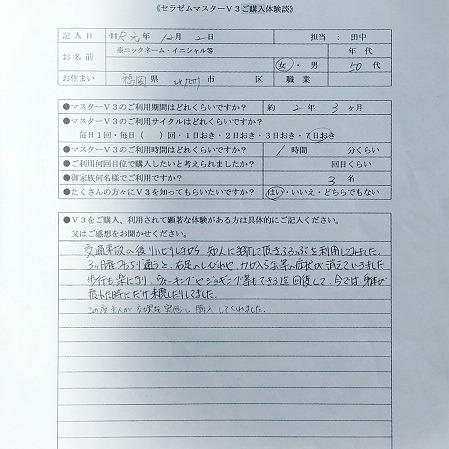 《セラゼムマスターV3ご購入体験談》
記入日 元年 12月 2日 担当：田中
お名前 ※ニックネーム・イニシャル等 年代
女・男 50代
お住まい 福岡県 北九州市 区 職業
●マスターV3のご利用期間はどれくらいですか？ 約 2年 3ヶ月
●マスターV3のご利用サイクルはどれくらいですか？
毎日1回・毎日（ ）回・1日おき・2日おき・3日おき・7日おき
●マスターV3のご利用時間はどれくらいですか？ 1時間 分くらい
●ご利用何回目位で購入したいと考えられましたか？ 回目くらい
●御家族何名様でご利用ですか？ 3名
●たくさんの方々にV3を知ってもらいたいですか？ はい・いいえ・どちらでもない
●V3をご購入、利用されて顕著な体験がある方は具体的にご記入ください。
又はご感想をお聞かせください。
交通事故の後リハビリしながら 知人に紹介して頂き を利用してみました。
3ヶ月程 通うと、右足のしびれや、 等の症状が消えていきました
歩行も楽になり、ウォーキングやジョギング等もできる位回復して、今では、身体が
疲れた時にだけ来院したりしてました。
この度主人が 効果を実感し 購入してくれました。